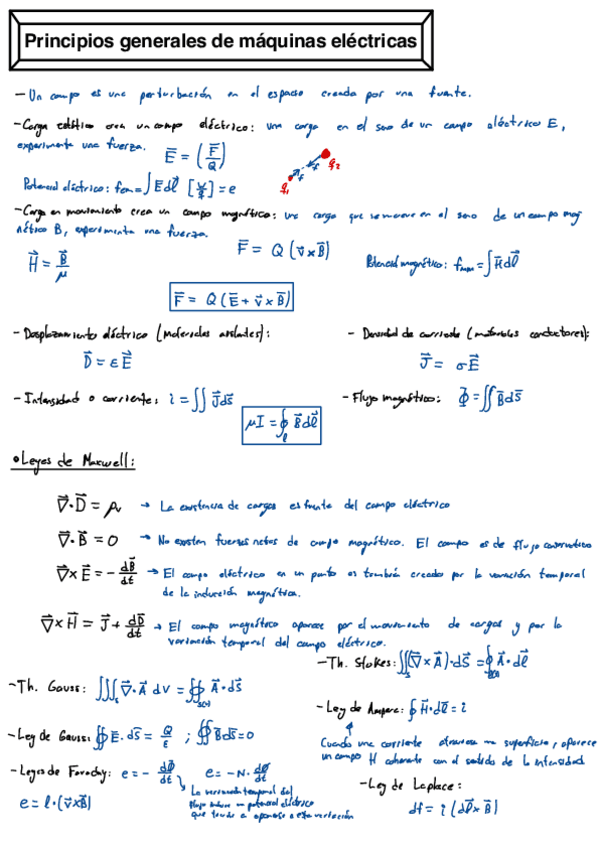 Principios generales de máquinas eléctricas
- Un campo es una perturbación en el espacio creada por una fuente.
- Carga estática crea un campo eléctrico: una carga en el seno de un campo eléctrico E,
experimenta una fuerza. E⃗ = (F⃗/Q) q₁ F F q₂
Potencial eléctrico: fem = ∫ E⃗ dl⃗ = e
- Carga en movimiento crea un campo magnético: una carga que se mueve en el seno de un campo mag
nético B, experimenta una fuerza.
H⃗ = B⃗/μ F⃗ = Q (v⃗ × B⃗) Potencial magnético: fmm = ∫ H⃗ dl⃗
F⃗ = Q (E⃗ + v⃗ × B⃗)
- Desplazamiento eléctrico (materiales aislantes): - Densidad de corriente (materiales conductores):
D⃗ = ε E⃗ J⃗ = σ E⃗
- Intensidad o corriente: i = ∬ J⃗ ds⃗ - Flujo magnético: Φ = ∬ B⃗ dS⃗
μI = ∮ₗ B⃗ dl⃗
• Leyes de Maxwell:
∇⃗ · D⃗ = ρ → La existencia de cargas es fuente del campo eléctrico
∇⃗ · B⃗ = 0 → No existen fuentes netas de campo magnético. El campo es de flujo conservativo
∇⃗ × E⃗ = - dB⃗/dt → El campo eléctrico en un punto es también creado por la variación temporal
de la inducción magnética.
∇⃗ × H⃗ = J⃗ + dD⃗/dt → El campo magnético aparece por el movimiento de cargas y por la
variación temporal del campo eléctrico.
- Th. Stokes: ∬ₛ (∇⃗ × A⃗) · dS⃗ = ∮ A⃗ · dl⃗
- Th. Gauss: ∭ ∇⃗ · A⃗ dV = ∯ A⃗ · dS⃗
- Ley de Ampere: ∮ H⃗ · dl⃗ = i
- Ley de Gauss: ∯ E⃗ · dS⃗ = Q/ε ; ∯ B⃗ dS⃗ = 0
Cuando una corriente atraviesa una superficie, aparece
un campo H coherente con el sentido de la intensidad
- Leyes de Faraday: e = - dΦ/dt e = - N · dΦ/dt
La variación temporal del
flujo induce un potencial eléctrico
que tiende a oponerse a esta variación
- Ley de Laplace:
e = l · (v⃗ × B⃗) df = i (dl⃗ × B⃗)